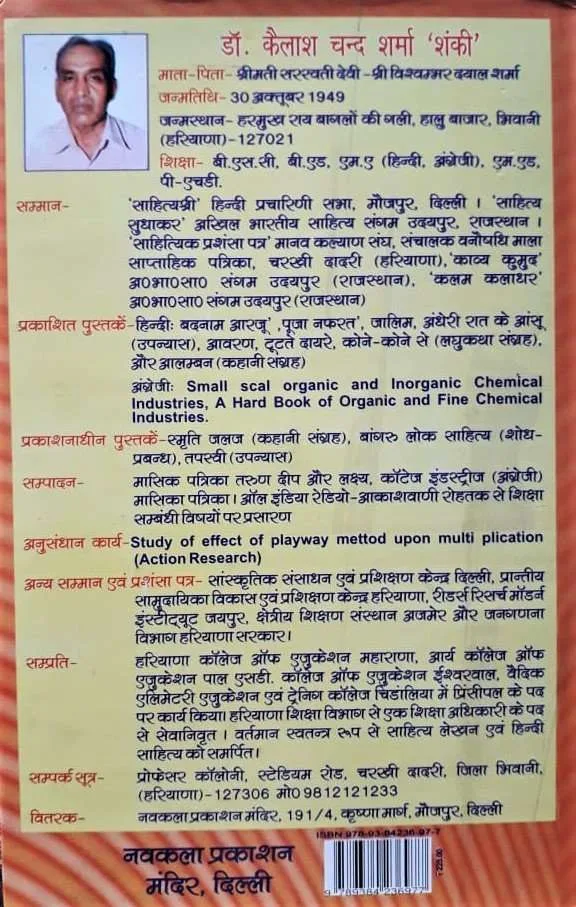 डॉ. कैलाश चन्द शर्मा 'शंकी'
माता-पिता- श्रीमती सरस्वती देवी -श्री विश्वम्भर दयाल शर्मा
जन्मतिथि- 30 अक्तूबर 1949
जन्मस्थान- हरमुख राय बागलों की गली, हालु बाजार, भिवानी
(हरियाणा)-127021
शिक्षा- बी.एस.सी, बी.एड, एम.ए (हिन्दी, अंग्रेजी), एम.एड,
पी-एचडी.
सम्मान- 'साहित्यश्री' हिन्दी प्रचारिणी सभा, मौजपुर, दिल्ली । 'साहित्य
सुधाकर' अखिल भारतीय साहित्य संगम उदयपुर, राजस्थान ।
'साहित्यिक प्रशंसा पत्र' मानव कल्याण संघ, संचालक वनौषधि माला
साप्ताहिक पत्रिका, चरखी दादरी (हरियाणा),'काव्य कुमुद'
अ०भा०सा० संगम उदयपुर (राजस्थान), 'कलम कलाधर'
अ०भा०सा० संगम उदयपुर (राजस्थान)
प्रकाशित पुस्तकें-हिन्दीः बदनाम आरजू' ,पूजा नफरत', जालिम, अंधेरी रात के आंसू
(उपन्यास), आवरण, टूटते दायरे, कोने-कोने से (लघुकथा संग्रह),
और आलम्बन (कहानी संग्रह)
अंग्रेजीः Small scal organic and Inorganic Chemical
Industries, A Hard Book of Organic and Fine Chemical
Industries.
प्रकाशनाधीन पुस्तकें-स्मृति जलज (कहानी संग्रह), बांगरु लोक साहित्य (शोध-
प्रबन्ध), तपस्वी (उपन्यास)
सम्पादन- मासिक पत्रिका तरुण दीप और लक्ष्य, कॉटेज इंडस्ट्रीज (अंग्रेजी)
मासिका पत्रिका । ऑल इंडिया रेडियो-आकाशवाणी रोहतक से शिक्षा
सम्बंधी विषयों पर प्रसारण
अनुसंधान कार्य-Study of effect of playway mettod upon multi plication
(Action Research)
अन्य सम्मान एवं प्रशंसा पत्र- सांस्कृतिक संसाधन एवं प्रशिक्षण केन्द्र दिल्ली, प्रान्तीय
सामुदायिका विकास एवं प्रशिक्षण केन्द्र हरियाणा, रीडर्स रिसर्च मॉडर्न
इंस्टीट्यूट जयपुर, क्षेत्रीय शिक्षण संस्थान अजमेर और जनगणना
विभाग हरियाणा सरकार ।
सम्प्रति- हरियाणा कॉलेज ऑफ एजुकेशन महाराणा, आर्य कॉलेज ऑफ
एजुकेशन पाल एसडी. कॉलेज ऑफ एजुकेशन ईश्वरवाल, वैदिक
एलिमेंटरी एजुकेशन एवं ट्रेनिग कॉलेज चिडालिया में प्रिंसीपल के पद
पर कार्य किया। हरियाणा शिक्षा विभाग से एक शिक्षा अधिकारी के पद
से सेवानिवृत । वर्तमान स्वतन्त्र रूप से साहित्य लेखन एवं हिन्दी
साहित्य को समर्पित।
सम्पर्क सूत्र- प्रोफेसर कॉलोनी, स्टेडियम रोड, चरखी दादरी, जिला भिवानी,
(हरियाणा)-127306 मो0 9812121233
वितरक- नवकला प्रकाशन मंदिर, 191/4, कृष्णा मार्ग, मौजपुर, दिल्ली
नवकला प्रकाशन
मंदिर, दिल्ली
ISBN 978-93-84236-97-7
9 789384 236977